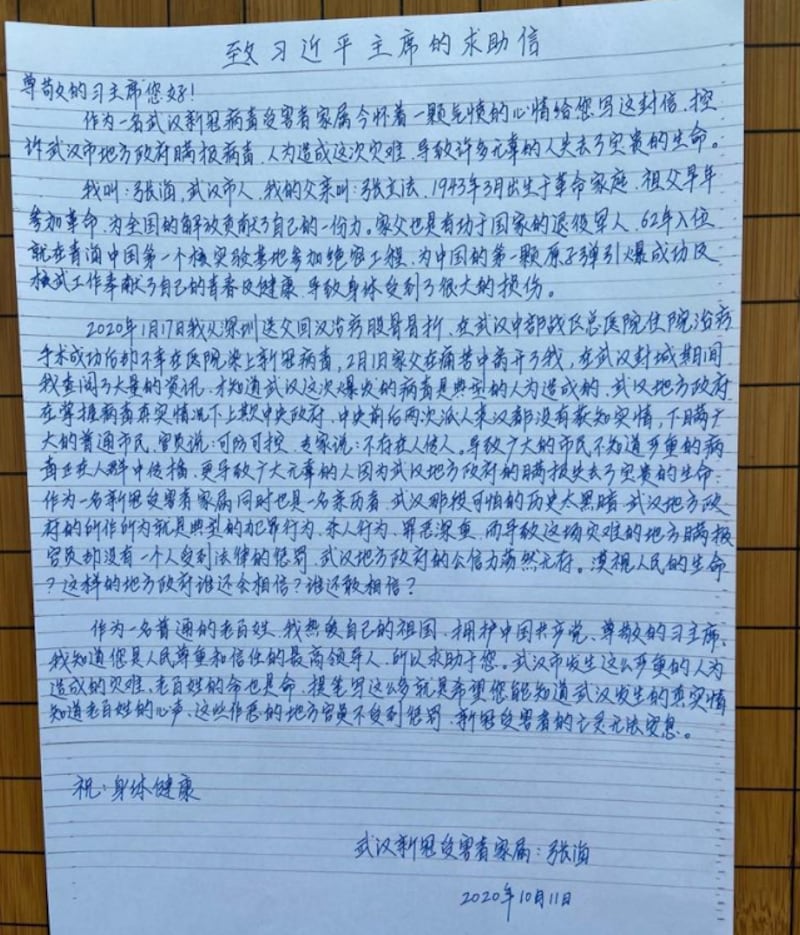 致习近平主席的求助信
尊敬的习主席您好!
作为一名武汉新冠病毒受害者家属今怀着一颗气愤的心情给您写这封信、控
诉武汉市地方政府瞒报病毒、人为造成这次灾难、导致许多无辜的人失去了宝贵的生命。
我叫:张海,武汉市人、我的父亲叫:张立法、1943年3月出生于革命家庭、祖父早年
参加革命、为全国的解放贡献了自己的一份力。家父也是有功于国家的退役军人、62年入伍
就在青海中国第一个核实验基地参加绝密工程、为中国的第一颗原子弹引爆成功及
核武工作奉献了自己的青春及健康、导致身体受到了很大的损伤。
2020年1月17日我从深圳送父回汉治疗股骨骨折、在武汉中部战区总医院住院治疗
手术成功后却不幸在医院染上新冠病毒,2月1日家父在痛苦中离开了我、在武汉封城期间
我查阅了大量的资讯、才知道武汉这次爆发的病毒是典型的人为造成的、武汉地方政府
在掌握病毒真实情况下上欺中央政府、中央前后两次派人来汉都没有获知实情,下瞒广
大的普通市民、官员说:可防可控、专家说:不存在人传人。导致广大的市民不知道严重的病
毒正在人群中传播、更导致广大无辜的人因为武汉地方政府的瞒报失去了宝贵的生命.
作为一名新冠受害者家属同时也是一名亲历者、武汉那段可怕的历史太黑暗、武汉地方政
府的所作所为就是典型的犯罪行为、杀人行为、罪恶深重、而导致这场灾难的地方瞒报
官员却没有一个人受到法律的惩罚、武汉地方政府的公信力荡然无存。漠视人民的生命
?这样的地方政府谁还会相信?谁还敢相信?
作为一名普通的老百姓、我热爱自己的祖国、拥护中国共产党、尊敬的习主席、
我知道您是人民尊重和信任的最高领导人、所以求助于您。武汉市发生这么严重的人为
造成的灾难、老百姓的命也是命、提笔写这么多就是希望您能知道武汉发生的真实情
知道老百姓的心声、这些作恶的地方官员不受到惩罚、新冠受害者的亡灵无法安息。
祝:身体健康
武汉新冠受害者家属:张海
2020年10月11日